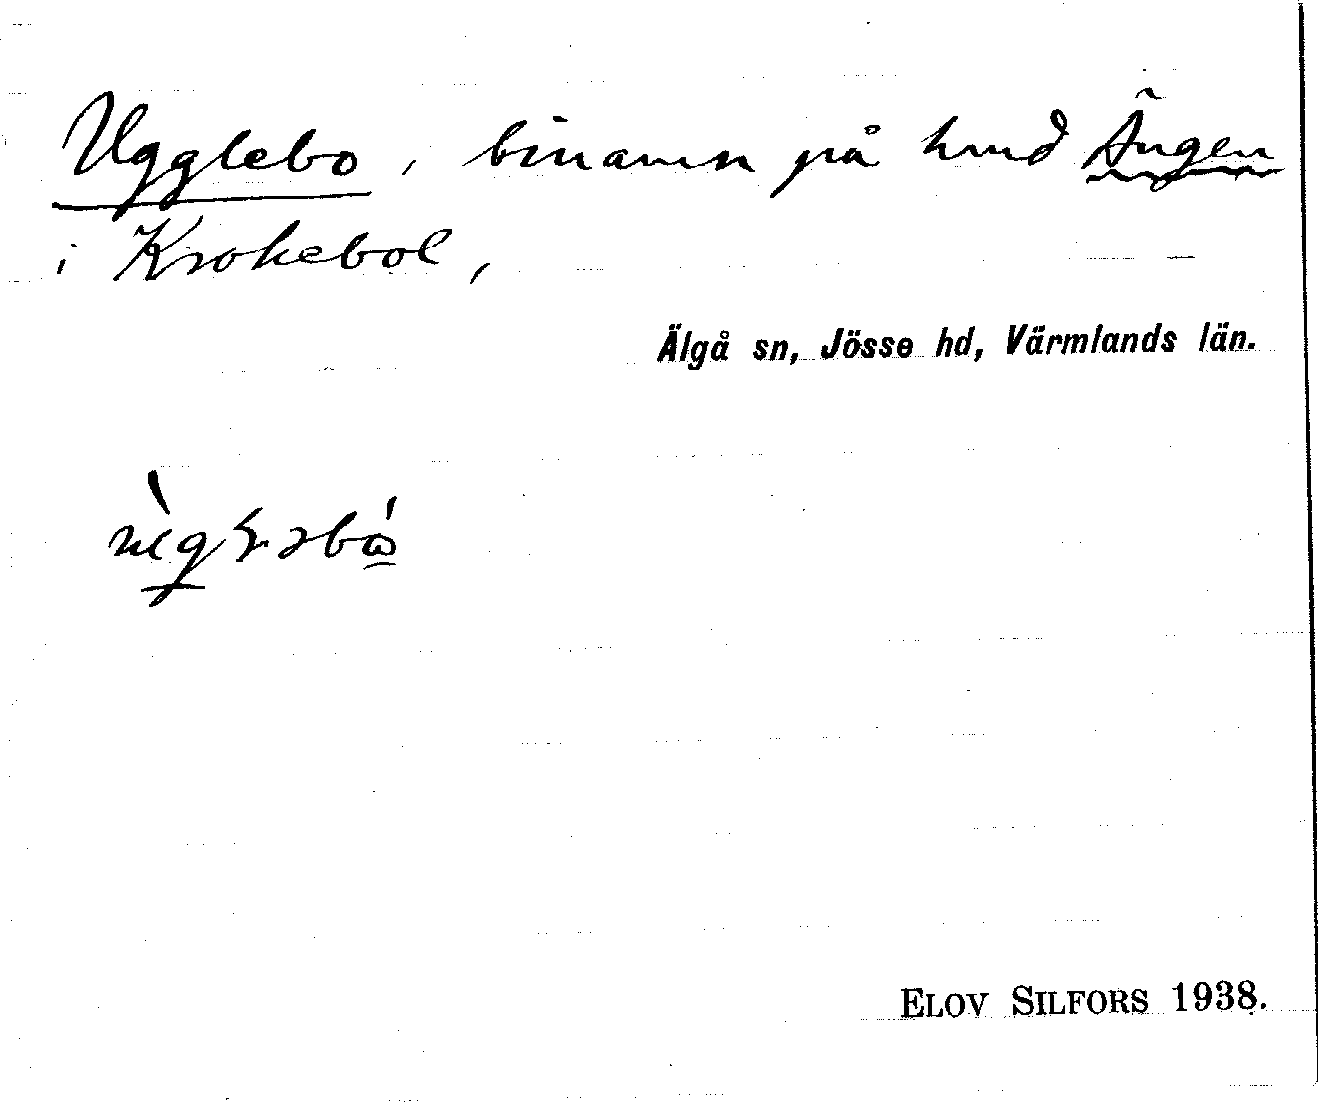 Ugglebo, binamn på hmd Ängen
i Krokebol,
Älgå sn, Jösse hd, Värmlands län.
ELOV SILFORS 1938.